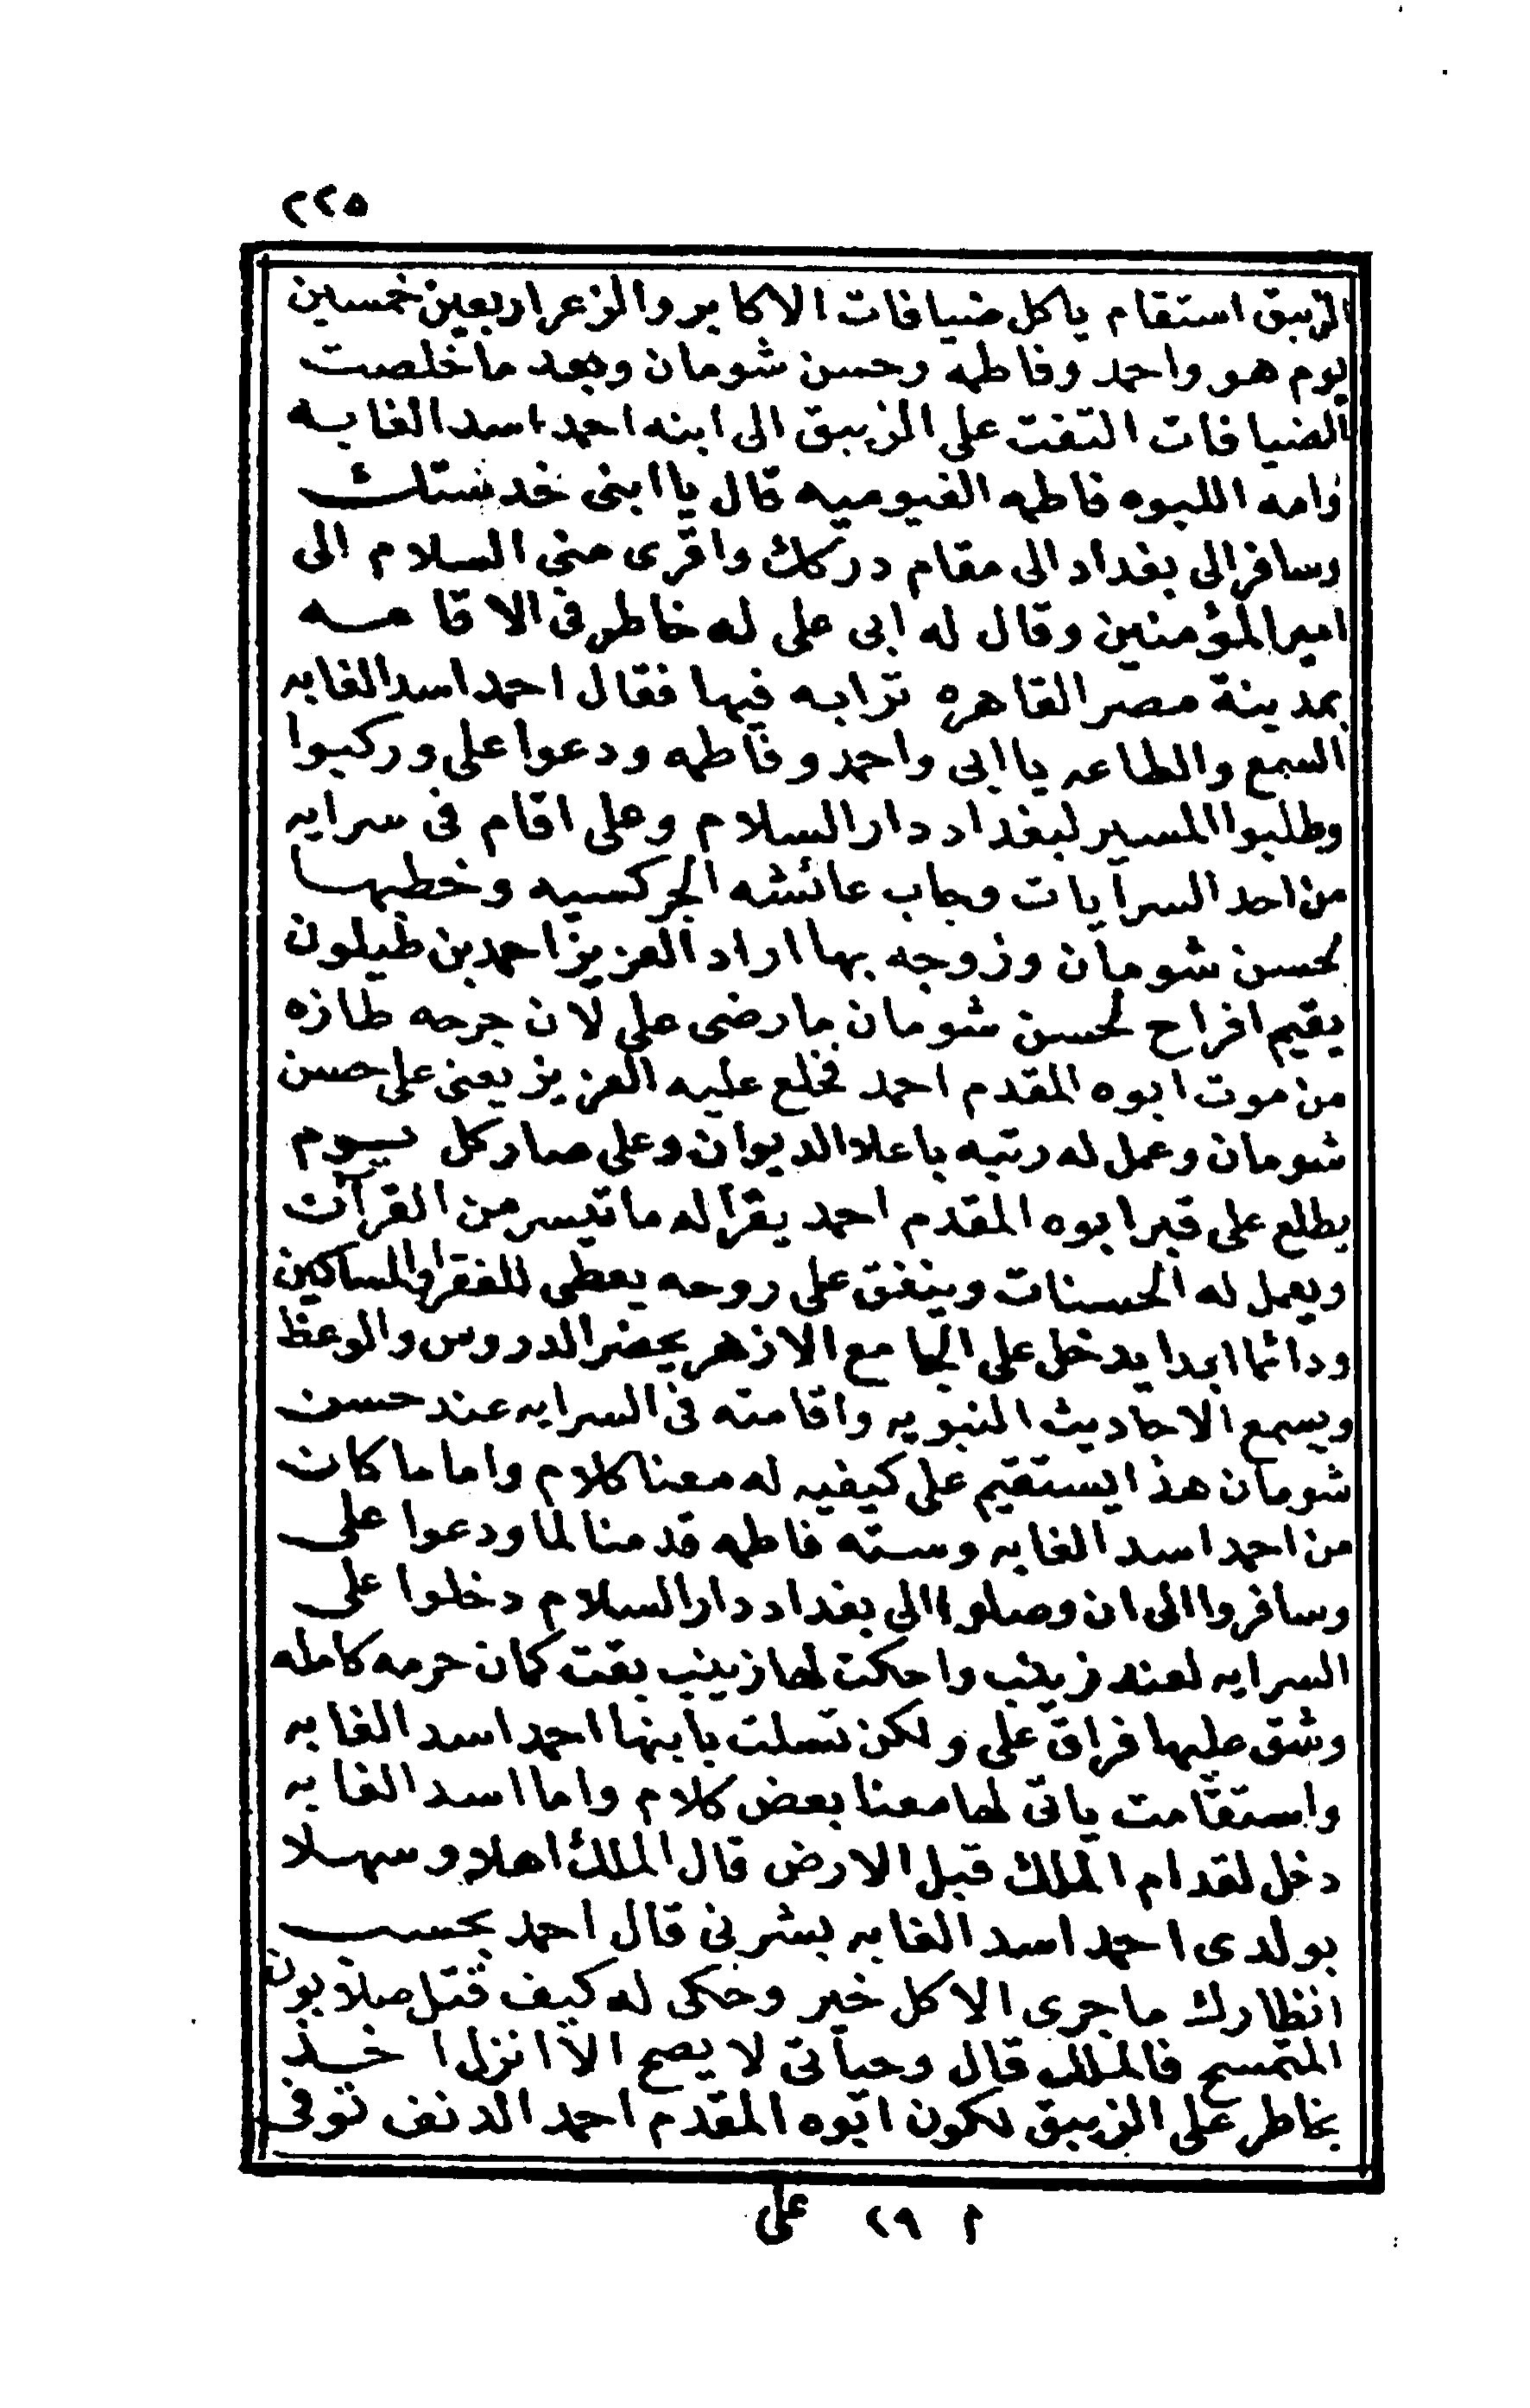 ٢٢٥
الزيبق استقام ياكل ضيافات الاكابر والزعر اربعين خمسين
يوم هو واحمد وفاطمه وحسن شومان وبعد ما خلصت
الضيافات التفت على الزيبق الى ابنه احمد اسد الغابه
وامه اللبوه فاطمه الفيوميه قال يا ابنى خد ستك
وسافر الى بغداد الى مقام دركك واقرى منى السلام الى
امير المؤمنين وقال له ابى على له خاطر فى الاقامه
بمدينة مصر القاهره ترابه فيها فقال احمد اسد الغابه
السمع والطاعه يا ابى واحمد وفاطمه ودعوا على وركبوا
وطلبوا المسير لبغداد دار السلام وعلى اقام فى سرايه
من احد السرايات وجاب عائشه الجركسيه وخطبها
لحسن شومان وزوجه بها اراد العزيز احمد بن طيلون
يقيم افراح لحسن شومان ما رضى على لان جرحه طازه
من موت ابوه المقدم احمد فخلع عليه العزيز يعنى على حسن
شومان وعمل له رتبه باعلا الديوان وعلى صار كل يوم
يطلع على قبر ابوه المقدم احمد يقرأ له ما تيسر من القرآن
ويعمل له الحسنات وينفق على روحه يعطى للفقرا والمساكين
ودائما ابدا يدخل على الجامع الازهر يحضر الدروس والوعظ
ويسمع الاحاديث النبويه واقامته فى السرايه عند حسن
شومان هذا يستقيم على كيفيه له معنا كلام واما ما كان
من احمد اسد الغابه وسته فاطمه قدمنا لما ودعوا على
وسافروا الى ان وصلوا الى بغداد دار السلام دخلوا على
السرايه لعند زينب واحكت لها زينب بقت كمان حرمه كامله
وشق عليها فراق على ولكن تسلت بابنها احمد اسد الغابه
واستقامت ياتى لها معنا بعض كلام واما اسد الغابه
دخل لقدام الملك قبل الارض قال الملك اهلا وسهلا
بولدى احمد اسد الغابه بشرنى قال احمد بحسب
انظارك ما جرى الا كل خير وحكى له كيف قتل صلابون
المتمسح فالملك قال وحياتى لا يصح الا انزل اخذ
بخاطر على الزيبق لكون ابوه المقدم احمد الدنف توفى
م ٢٩ على